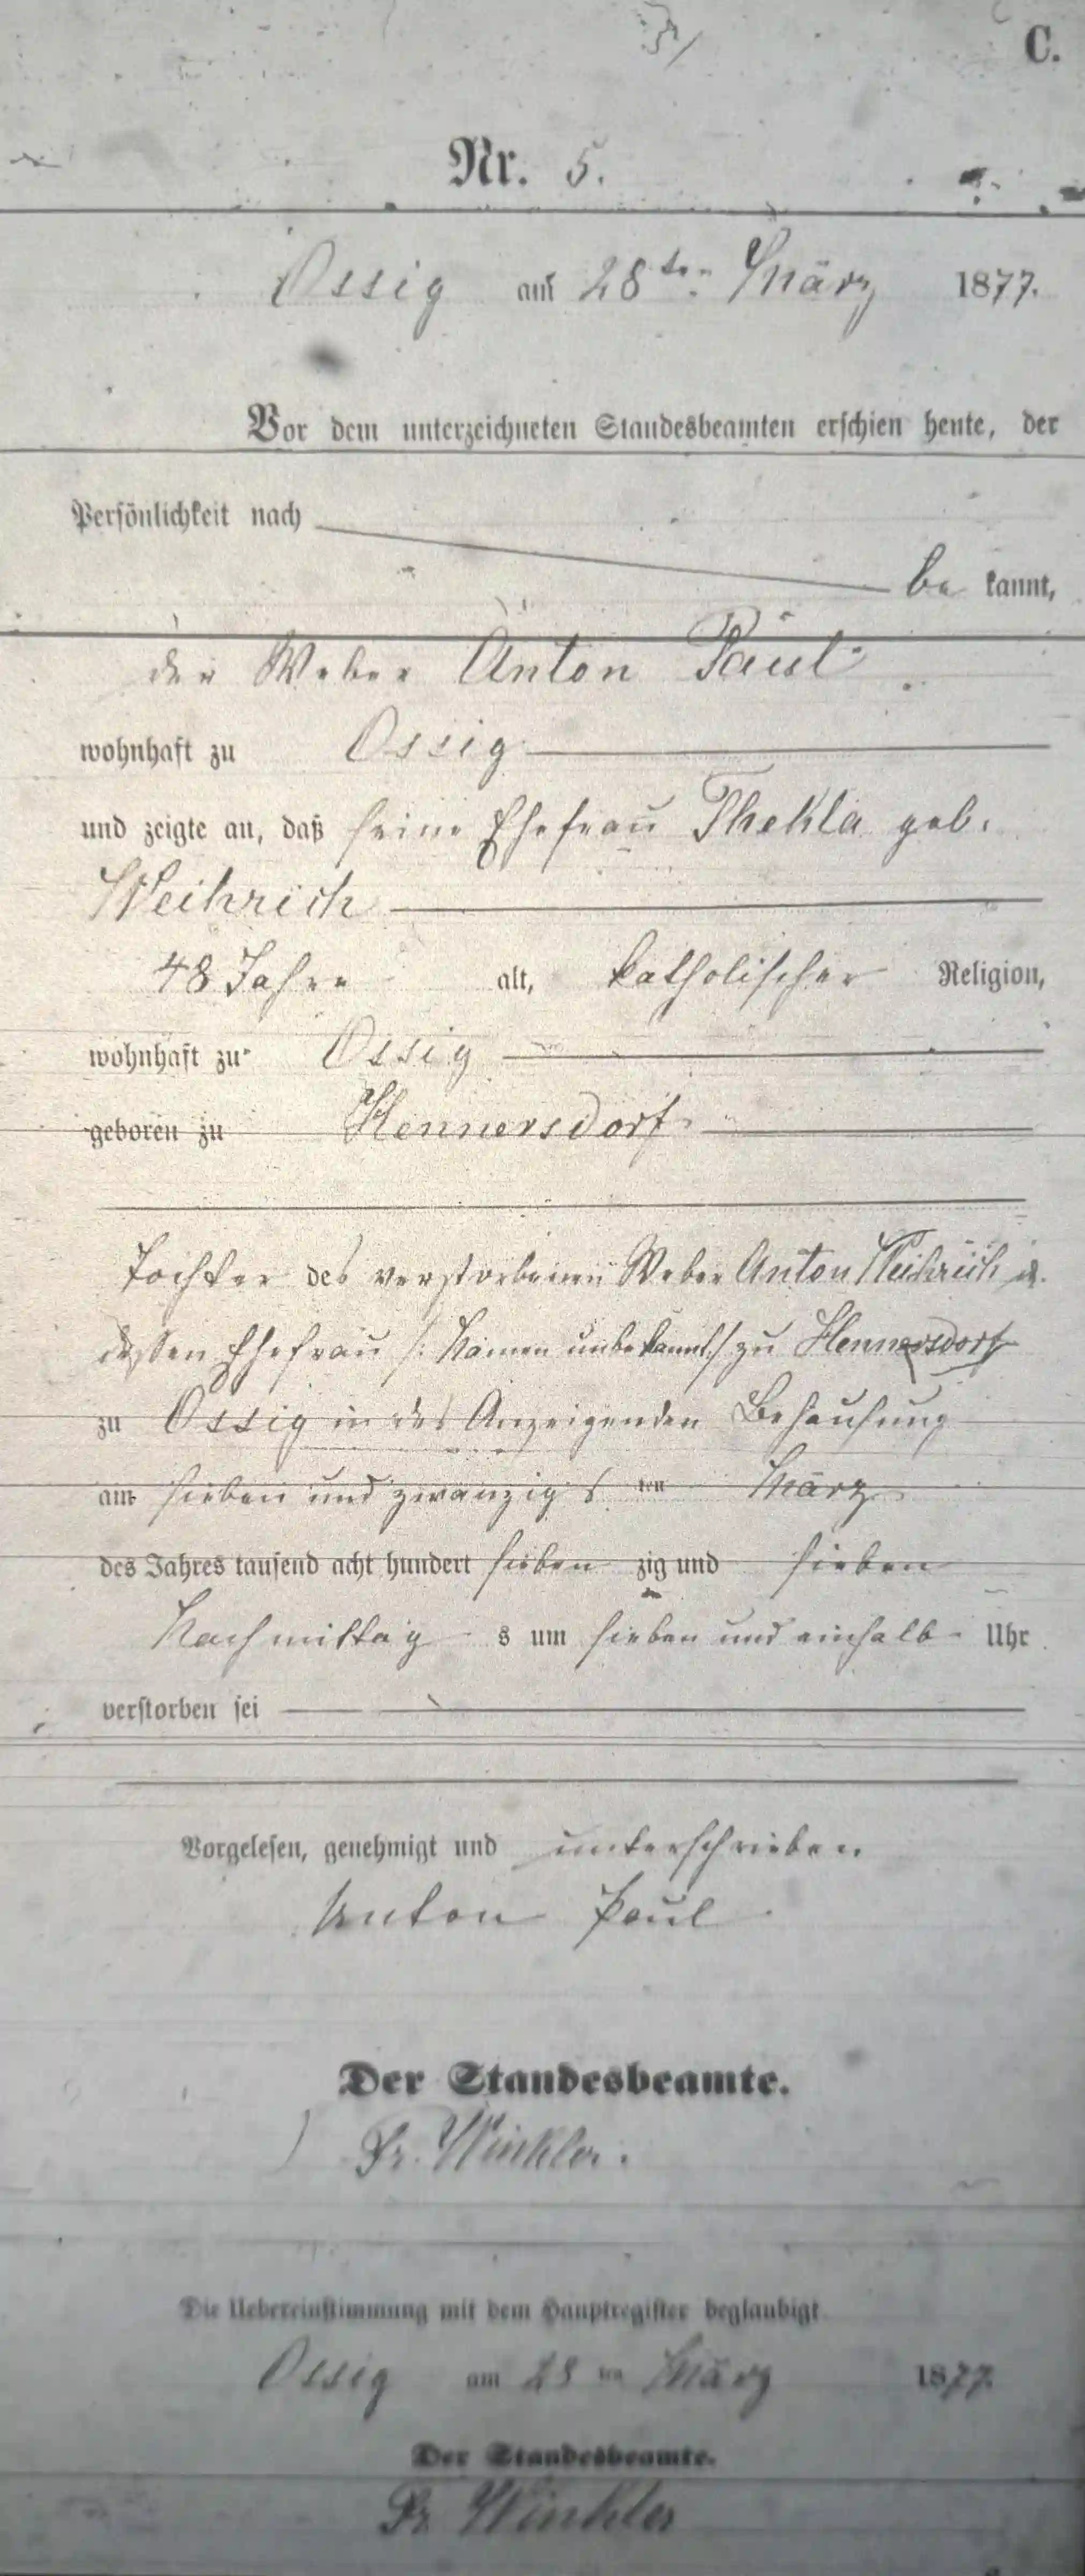 C.
Nr. 5.
Ossig am 28ten März 1877.
Vor dem unterzeichneten Standesbeamten erschien heute, der
Persönlichkeit nach
be kannt,
der Weber Anton Paul
wohnhaft zu Ossig
und zeigte an, daß seine Ehefrau Thekla geb.
Weihrich
48 Jahre alt, katholischer Religion,
wohnhaft zu Ossig
geboren zu Hennersdorf
Tochter des verstorbenen Weber Anton Weihrich u.
dessen Ehefrau /: Namen unbekannt :/ zu Hennersdorf
zu Ossig in des Anzeigenden Behausung
am sieben und zwanzigsten März
des Jahres tausend acht hundert sieben zig und sieben
Nachmittag s um sieben und einhalb Uhr
verstorben sei
Vorgelesen, genehmigt und unterschrieben
Anton Paul
Der Standesbeamte.
Fr. Winkler.
Die Uebereinstimmung mit dem Hauptregister beglaubigt
Ossig am 28 ten März 1877.
Der Standesbeamte.
Fr. Winkler